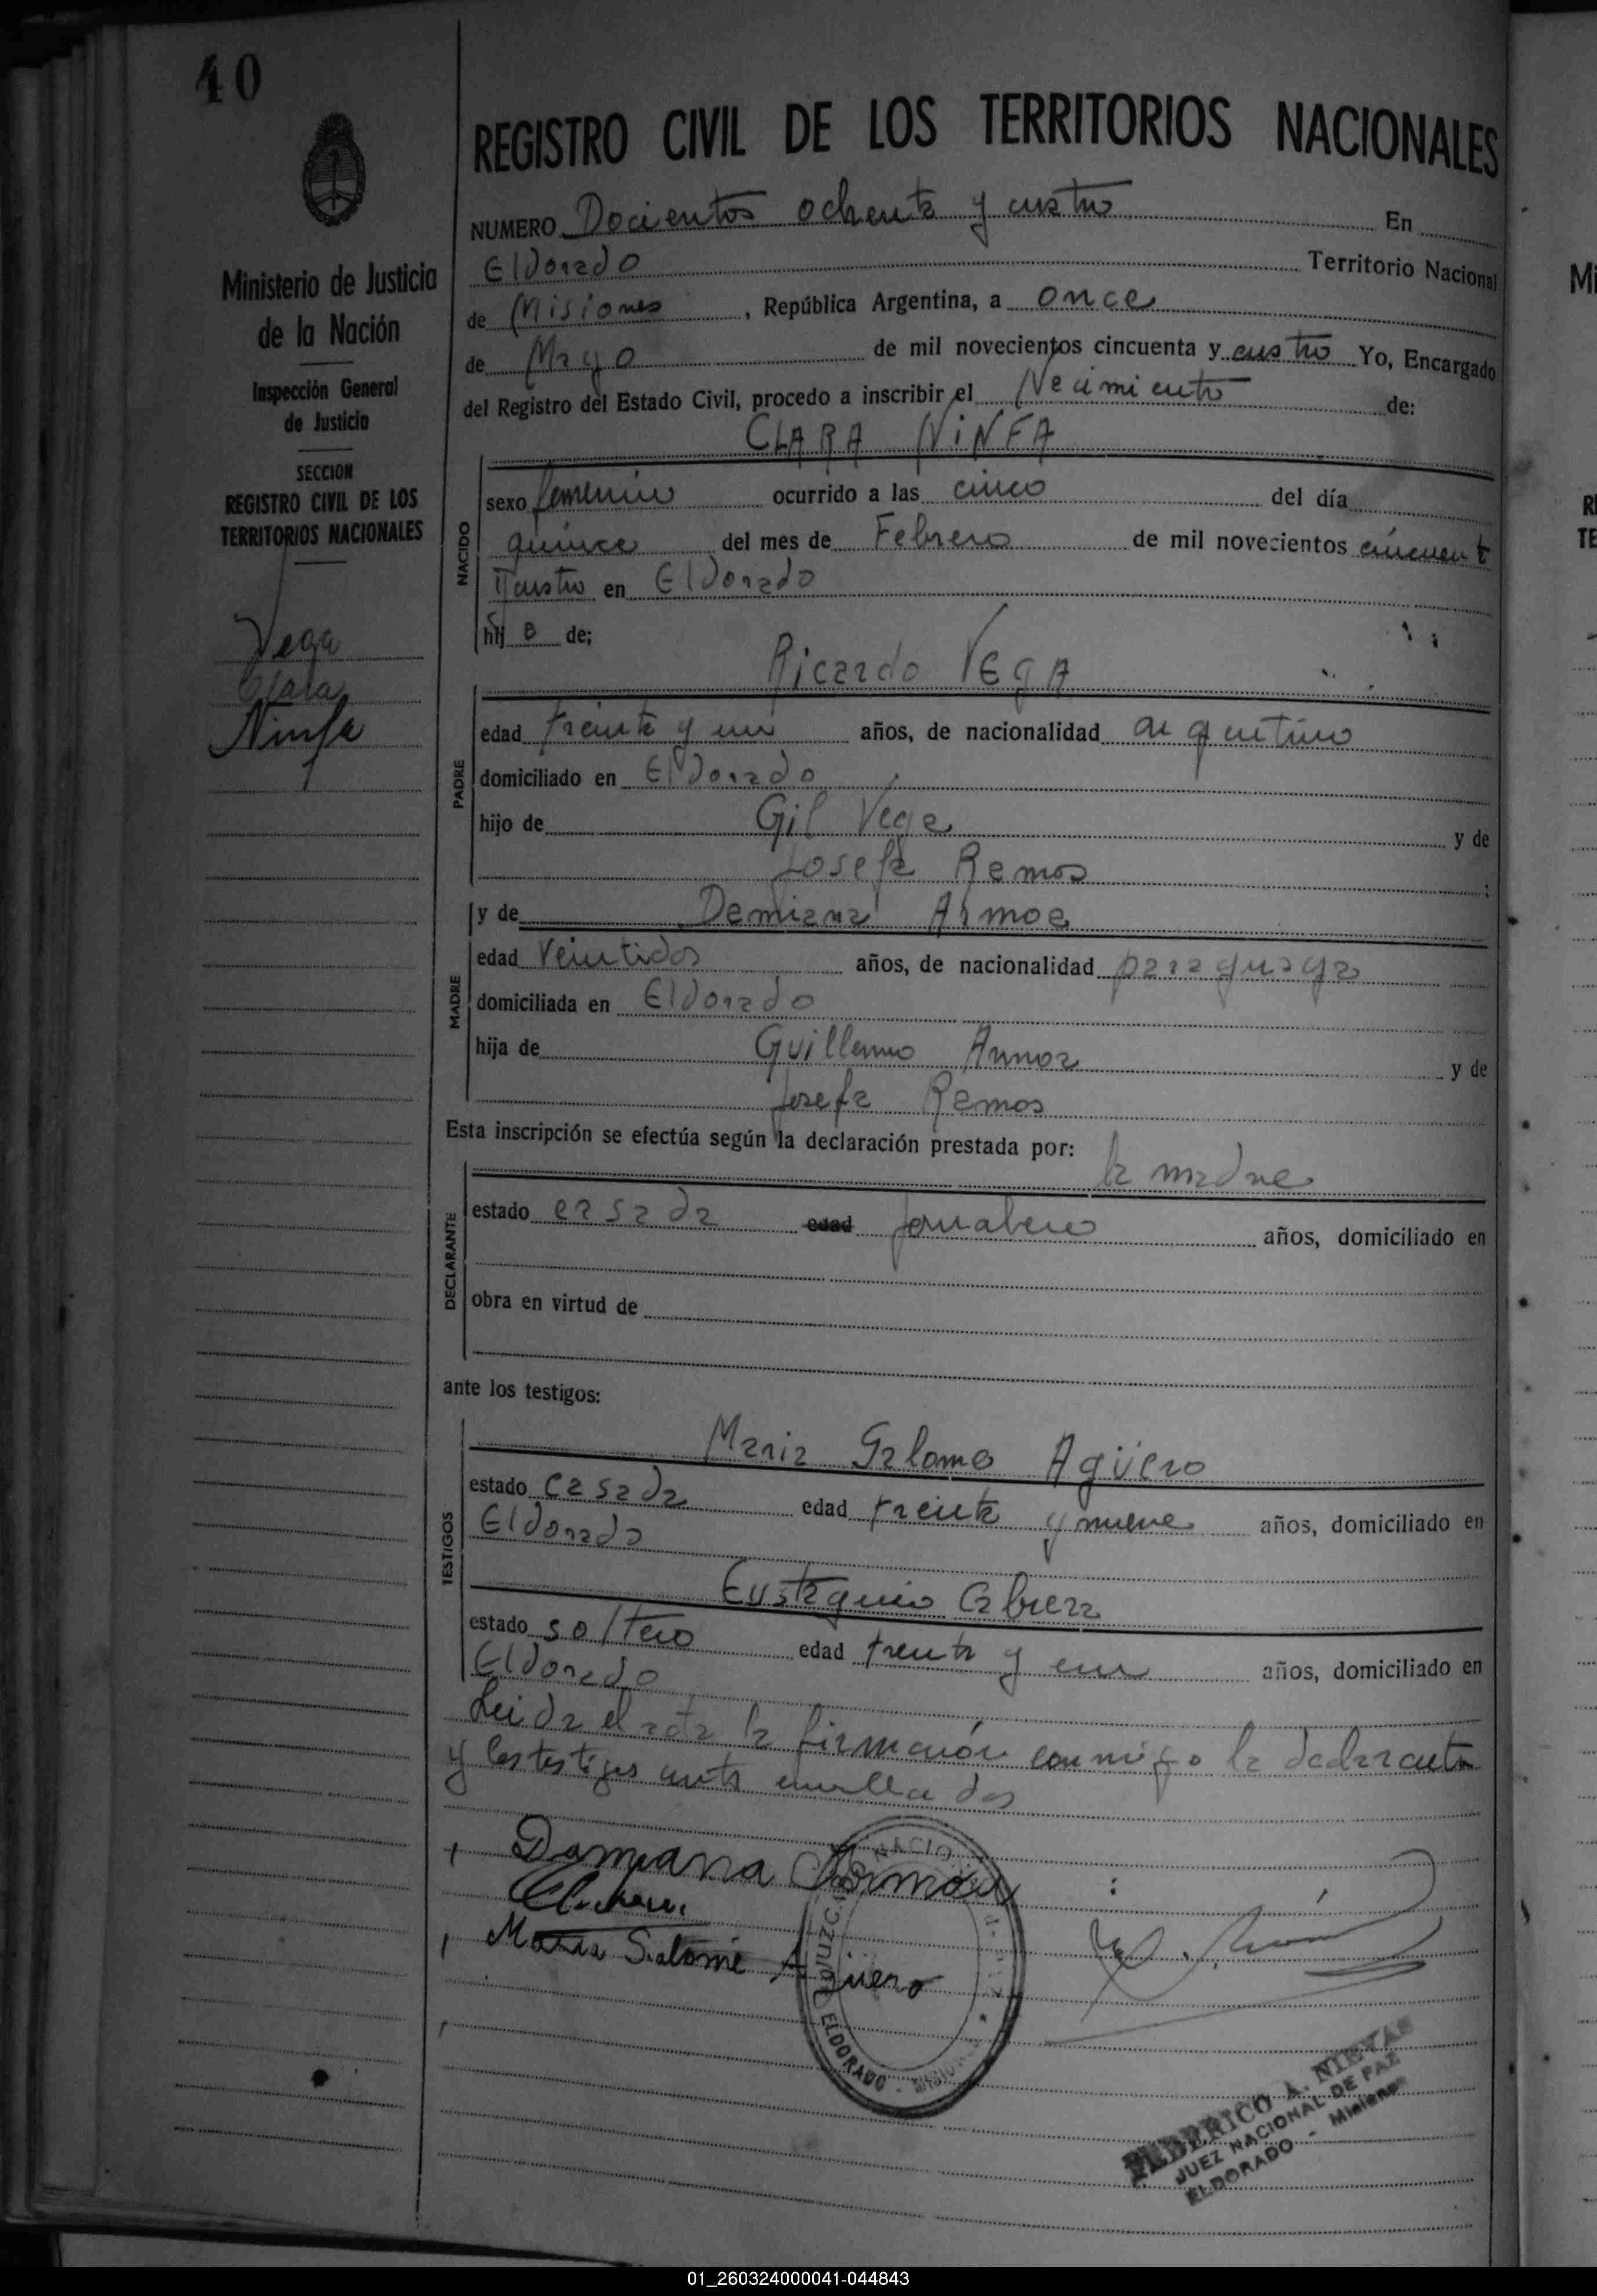 40
REGISTRO CIVIL DE LOS TERRITORIOS NACIONALES
NUMERO Docientos ochenta y cuatro En
Eldorado Territorio Nacional
de Misiones, República Argentina, a once
de Mayo de mil novecientos cincuenta y cuatro Yo, Encargado
del Registro del Estado Civil, procedo a inscribir el Nacimiento de:
CLARA NiNFA
Ministerio de Justicia
de la Nación
Inspección General
de Justicia
SECCION
REGISTRO CIVIL DE LOS
TERRITORIOS NACIONALES
Vega
Clara
Ninfa
NACIDO
sexo femenino ocurrido a las cinco del día
quince del mes de Febrero de mil novecientos cincuent
y cuatro en Eldorado
hij a de;
Ricardo VEgA
PADRE
edad treinta y un años, de nacionalidad argentino
domiciliado en Eldorado
hijo de Gil Vega y de
Josefa Ramos;
y de Damiana Armoa
MADRE
edad Veintidos años, de nacionalidad paraguaya
domiciliada en Eldorado
hija de Guillermo Armoa y de
Josefa Ramos
Esta inscripción se efectúa según la declaración prestada por:
la madre
DECLARANTE
estado casada edad jornalero años, domiciliado en
obra en virtud de
ante los testigos:
TESTIGOS
Maria Salome Agüero
estado casada edad treinta y nueve años, domiciliado en
Eldorado
Eustaquio Cabrera
estado soltero edad trenta y un años, domiciliado en
Eldorado
Leida el acta la firmaron conmigo la declarante
y los testigos
Damiana Armoa
Maria Salomé Agüero
NACIO
JUZG
ELDORADO - MISIONES
FEDERICO A. NIEVAS
JUEZ NACIONAL DE PAZ
ELDORADO - Misiones
01_260324000041-044843